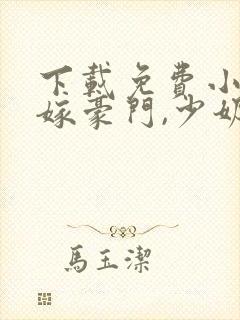 下載免費小
嫁豪門,少奶
馬玉潔